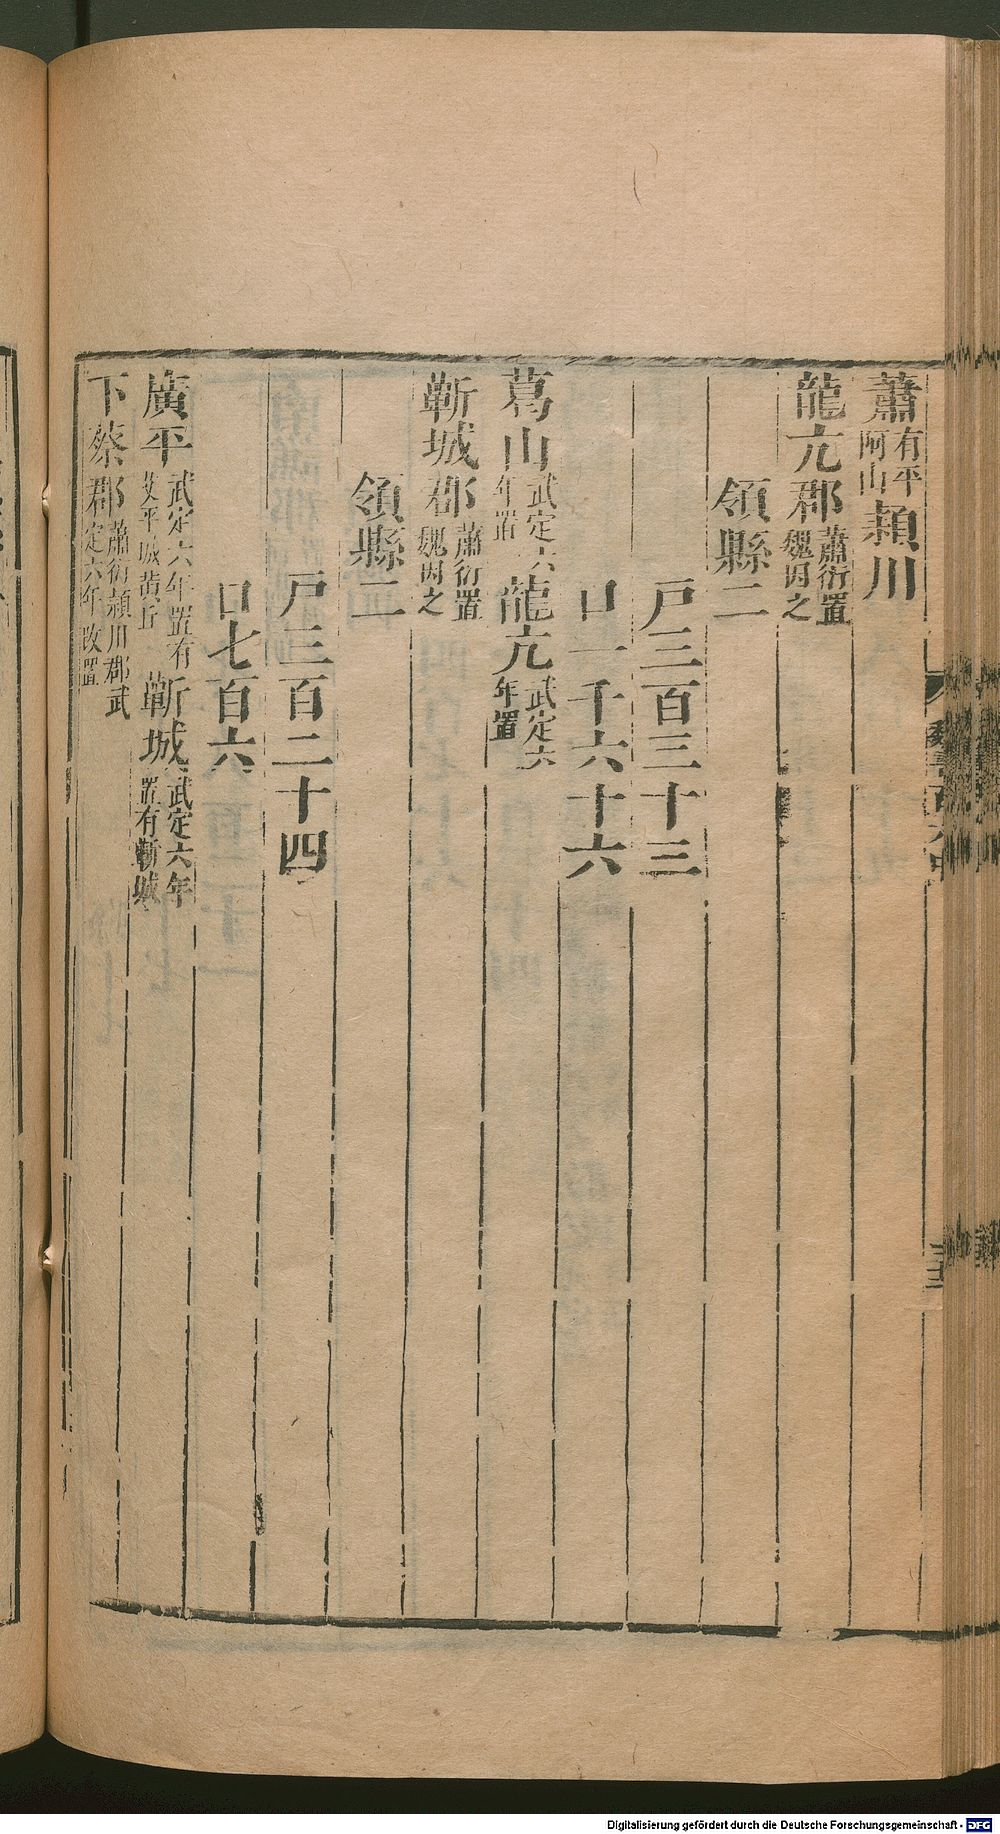 蕭有平阿山潁川
龍亢郡蕭衍置魏因之
領縣二
戸三百三十三
口一千六十六
葛山武定六年置龍亢武定六年置
蘄城郡蕭衍置魏因之
領縣二
戸三百二十四
口七百六
廣平武定六年置有艾平城黃丘蘄城武定六年置有蘄城
下蔡郡蕭衍潁川郡武定六年改置
Digitalisierung gefördert durch die Deutsche Forschungsgemeinschaft - DFG